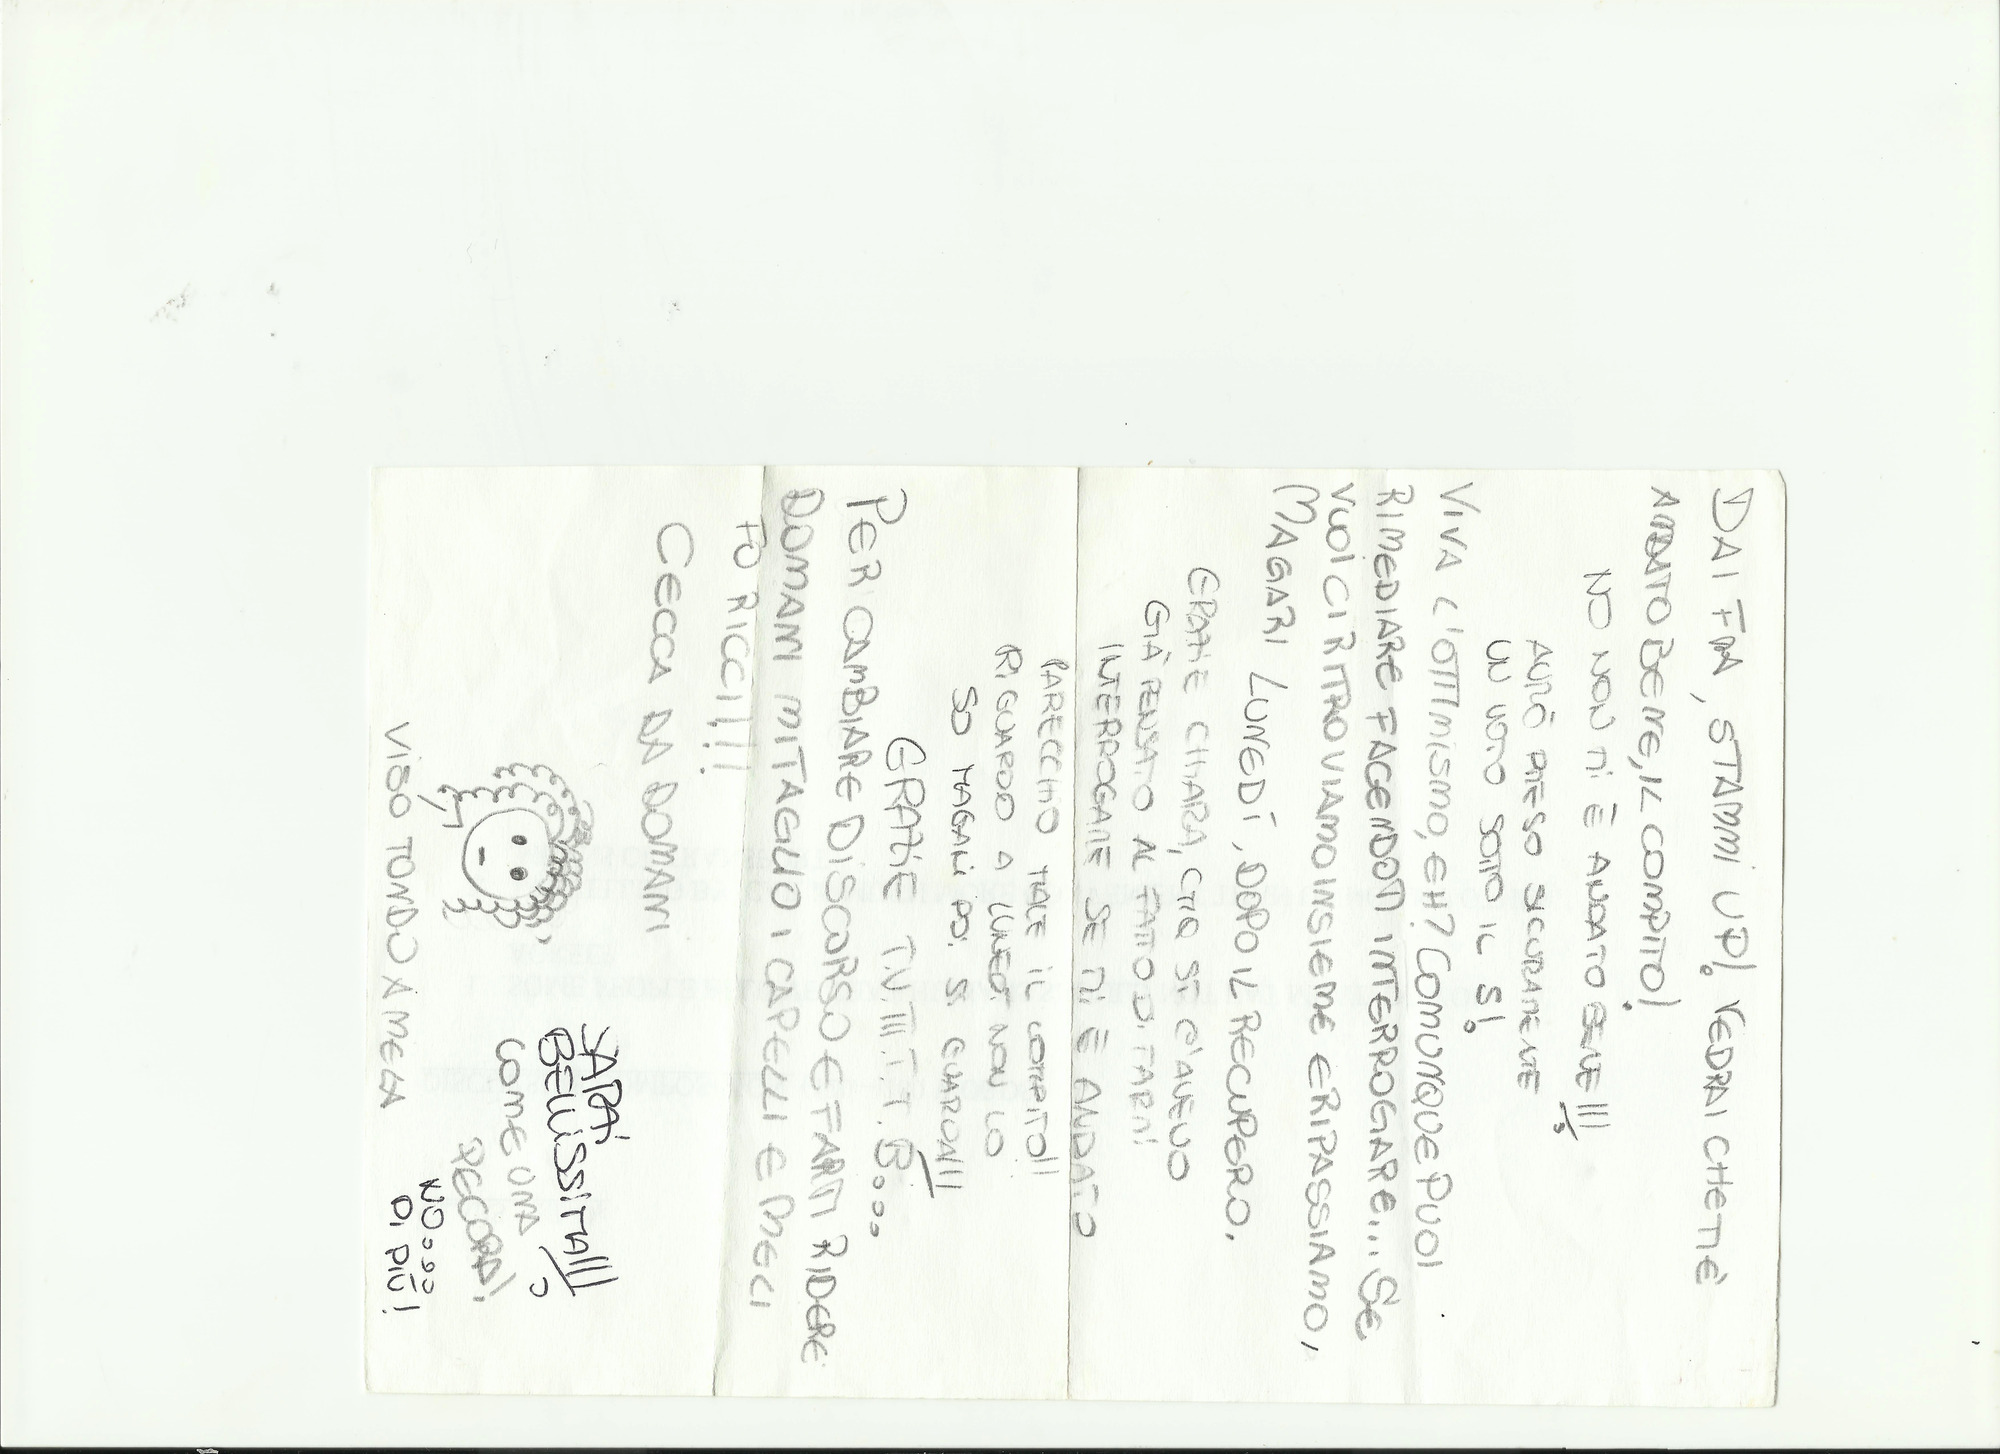 DAI FRA, STAMMI UP! VEDRAI CHE TI È
ANDATO BENE, IL COMPITO!
NO NON TI È ANDATO BENE!!!
AVRÒ PRESO SICURAMENTE
UN VOTO SOTTO IL 5!
VIVA L'OTTIMISMO, EH? COMUNQUE PUOI
RIMEDIARE FACENDOTI INTERROGARE... SE
VUOI CI RITROVIAMO INSIEME E RIPASSIAMO,
MAGARI LUNEDÌ, DOPO IL RECUPERO.
GRAZIE CHIARA, CMQ SI C'AVEVO
GIÀ PENSATO AL FATTO DI FARMI
INTERROGARE SE TI È ANDATO
PARECCHIO MALE IL COMPITO!!
RIGUARDO A LUNEDÌ NON LO
SO MAGARI POI SI GUARDA!!!
GRAZIE T.V.T.T.T.T.B....
PER CAMBIARE DISCORSO E FARTI RIDERE
DOMANI MI TAGLIO I CAPELLI E ME CI
FO RICCI!!!
CECCA DA DOMANI
VISO TONDO A MELA
SARÀ
BELLISSIMA!!!
COME UNA
PECORA!
NO....
DI PIÙ!